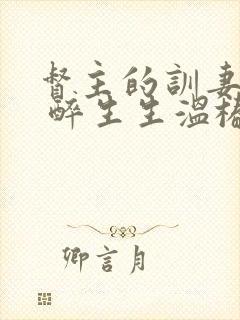 督主的訓妻
醉生生溫
卿言月